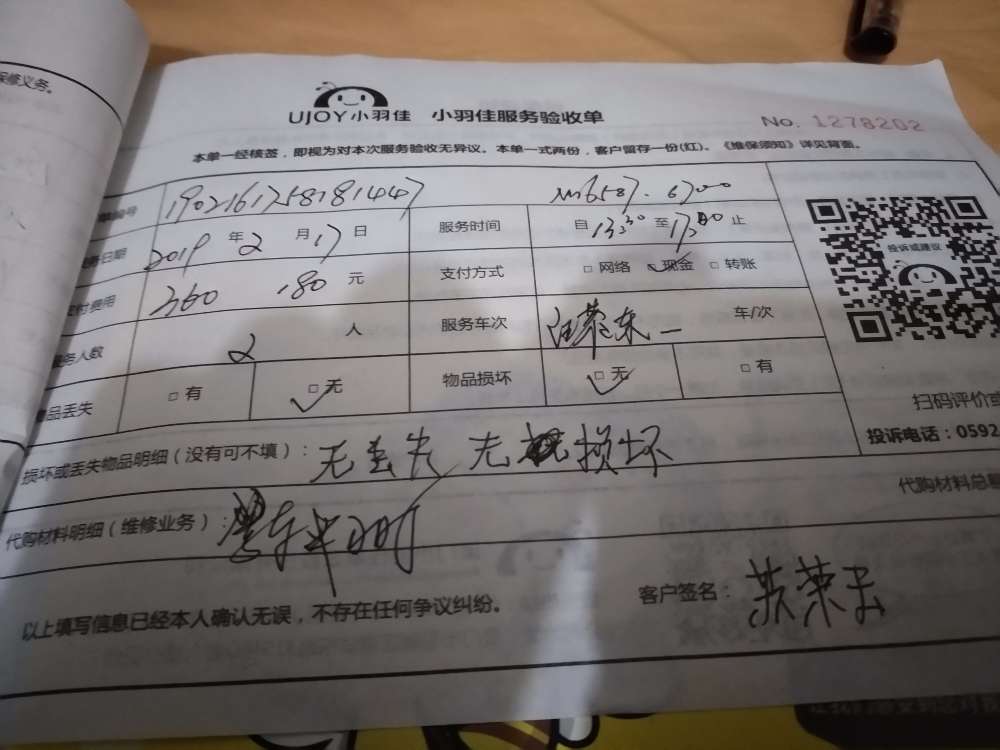 保修义务。
UJOY小羽佳 小羽佳服务验收单
No. 1278202
本单一经核签，即视为对本次服务验收无异议。本单一式两份，客户留存一份(红)。《维保须知》详见背面。
编号 1902161758181447
日期 2019 年 2 月 17 日 服务时间 自 13:30 至 17:30 止
付费用 360 .80 元 支付方式 □ 网络 ✓现金 □ 转账
务人数 2 人 服务车次 车/次
品丢失 □ 有 ✓□ 无 物品损坏 ✓□ 无 □ 有
投诉或建议
扫码评价或
投诉电话：0592
损坏或丢失物品明细（没有可不填）：无丢失 无损坏
代购材料总
代购材料明细（维修业务）：
以上填写信息已经本人确认无误，不存在任何争议纠纷。
客户签名：